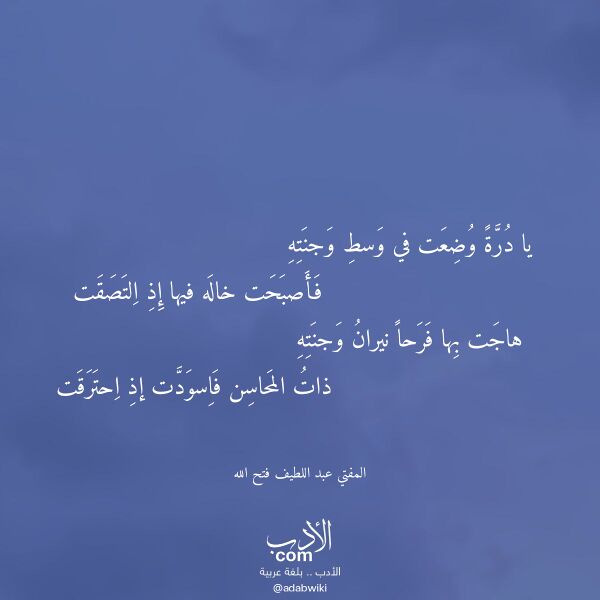 يا دُرَّةً وُضِعَت في وَسطِ وَجنَتِهِ
فَأَصبَحَت خالَه فيها إِذِ اِلتَصَقَت
هاجَت بِها فَرَحاً نيرانُ وَجنَتِهِ
ذاتُ المَحاسِن فَاِسوَدَّت إذِ اِحتَرَقَت
المفتي عبد اللطيف فتح الله
الأدب
com
الأدب .. بلغة عربية
@adabwiki